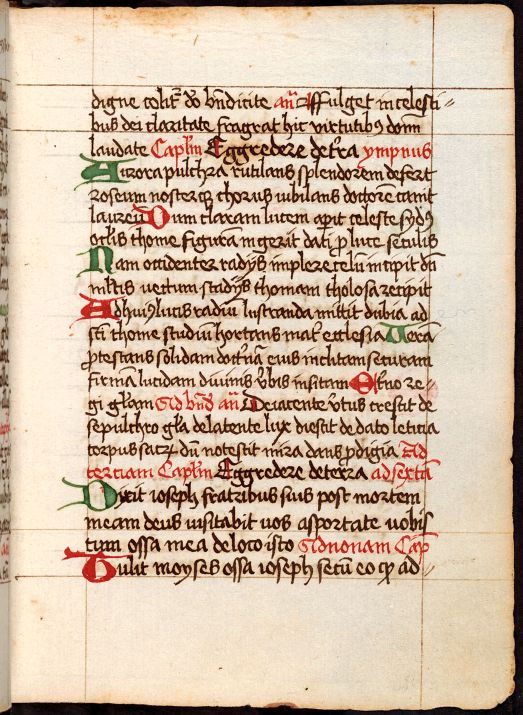 digne colit᷑ d̅o b̅ndicite an̅ Effulget in celesti
bus dei claritate fragrat hic virtutibꝰ dom̅
laudate Capl̅m Eggredere de t᷑ra ympnus
Aurora pulchra rutilans splendorem defert
roseum noster qꝫ chorus iubilans doctorem canit
laureu̅ Dum claram lucem ap̲it celeste sydꝰ
oc̅lis thome figuram ingerit dati ꝓ luce seculis
Nam occidentem radijs implere celu̅ incipit du̅
ml̅tis vectum stadijs thomam tholosa recipit
Adhuc lucis radiu̅ lustranda mittit dubia ad
sc̅i thome studiu̅ hortans mat᷑ ecclesia Vera̅
ꝓtestans solidam doct᷑na̅ eius inclitam securam
firmam lucidam diuinis v᷑bis insitam Et᷑no re
gi gl̅am Ad b̅nd̅ an̅ De iacente v᷑tus crescit de
sepulchro gl̅a de latente lux diescit de dato leticia
corpus sacr̅ du̅ notescit mira dans ꝓdigia Ad
terciam Capl̅m Eggredere de terra ad sexta̅
Dixit ioseph fratribus suis post mortem
meam deus visitabit vos asportate vobis
cum ossa mea de loco isto Ad nonam Cap̅
Tulit moyses ossa ioseph secu̅ eo ꝙ ad